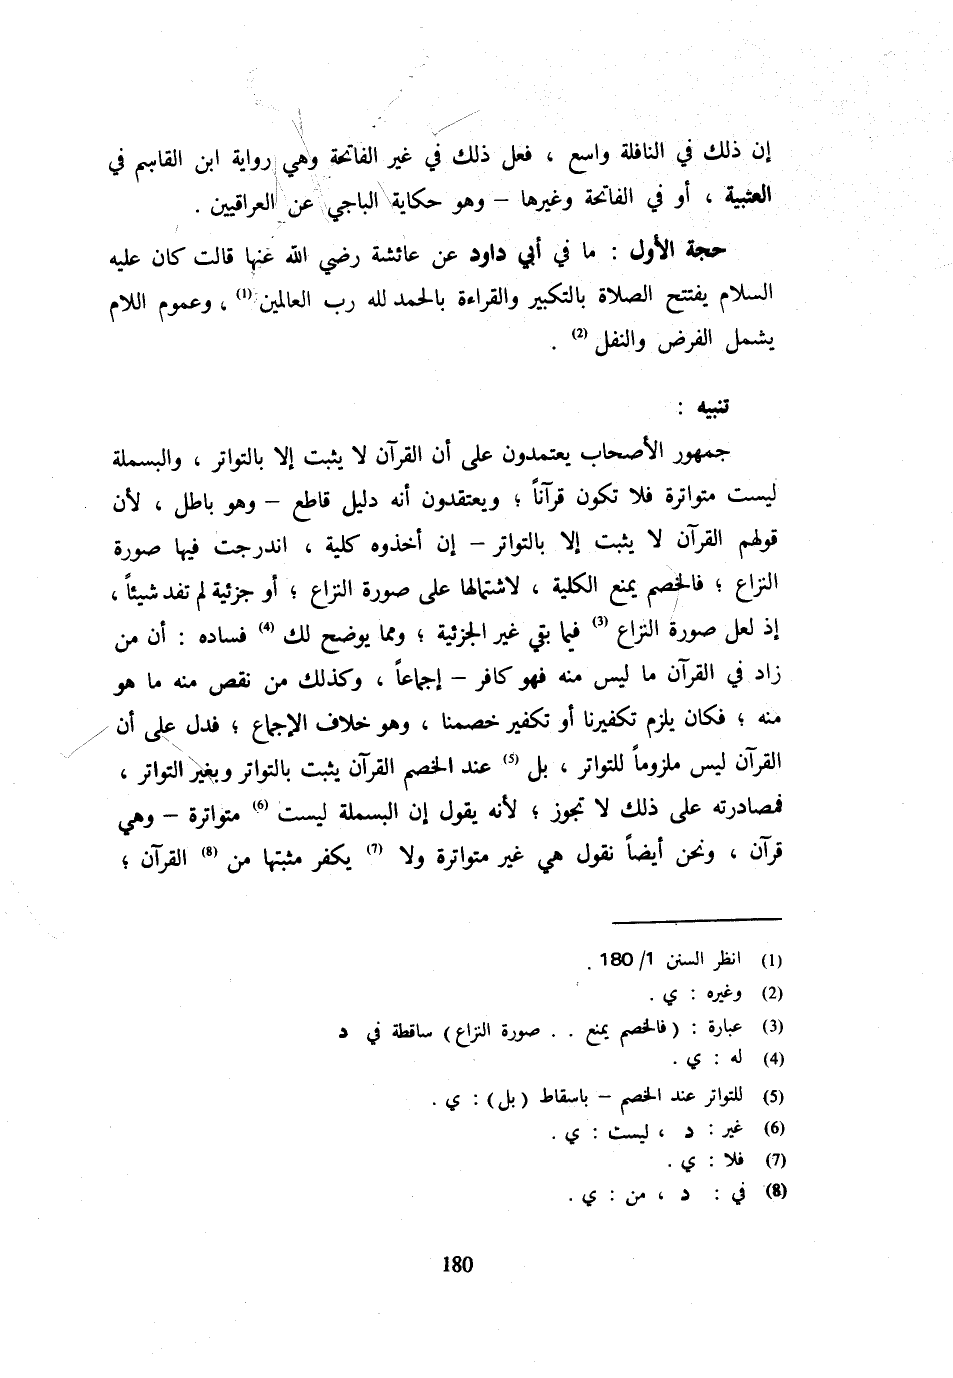 إن ذلك في النافلة واسع ، فعل ذلك في غير الفاتحة وهي رواية ابن القاسم في
العتبية ، أو في الفاتحة وغيرها – وهو حكاية الباجي عن العراقيين .
حجة الأول : ما في أبي داود عن عائشة رضي الله عنها قالت كان عليه
السلام يفتتح الصلاة بالتكبير والقراءة بالحمد لله رب العالمين (1) ، وعموم اللام
يشمل الفرض والنفل (2) .
تنبيه :
جمهور الأصحاب يعتمدون على أن القرآن لا يثبت إلا بالتواتر ، والبسملة
ليست متواترة فلا تكون قرآناً ؛ ويعتقدون أنه دليل قاطع – وهو باطل ، لأن
قولهم القرآن لا يثبت إلا بالتواتر – إن أخذوه كلية ، اندرجت فيها صورة
النزاع ؛ فالخصم يمنع الكلية ، لاشتمالها على صورة النزاع ؛ أو جزئية لم تفد شيئاً ،
إذ لعل صورة النزاع (3) فيما بقي غير الجزئية ؛ ومما يوضح لك (4) فساده : أن من
زاد في القرآن ما ليس منه فهو كافر – إجماعاً ، وكذلك من نقص منه ما هو
منه ؛ فكان يلزم تكفيرنا أو تكفير خصمنا ، وهو خلاف الإجماع ؛ فدل على أن
القرآن ليس ملزوماً للتواتر ، بل (5) عند الخصم القرآن يثبت بالتواتر وبغير التواتر ،
فمصادرته على ذلك لا تجوز ؛ لأنه يقول إن البسملة ليست (6) متواترة – وهي
قرآن ، ونحن أيضاً نقول هي غير متواترة ولا (7) يكفر مثبتها من (8) القرآن ؛
(1) انظر السنن 1/ 180 .
(2) وغيره : ي .
(3) عبارة : ( فالخصم يمنع . . صورة النزاع ) ساقطة في د
(4) له : ي .
(5) للتواتر عند الخصم – باسقاط ( بل ) : ي .
(6) غير : د ، ليست : ي .
(7) فلا : ي .
(8) في : د ، من : ي .
180